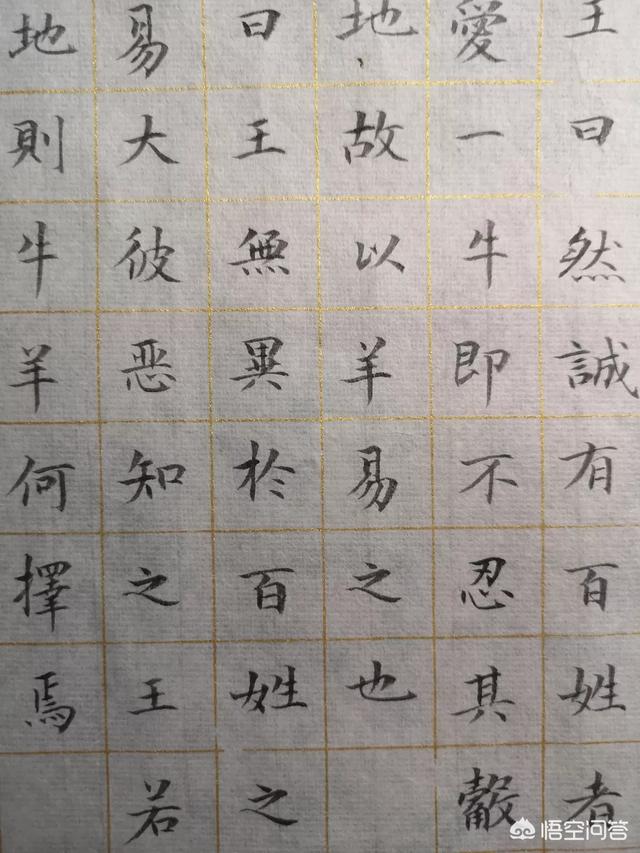 王曰然誠有百姓者
愛一牛即不忍其觳
地、故以羊易之也
曰王無異於百姓之
易大彼恶知之王若
地則牛羊何擇焉
悟空问答